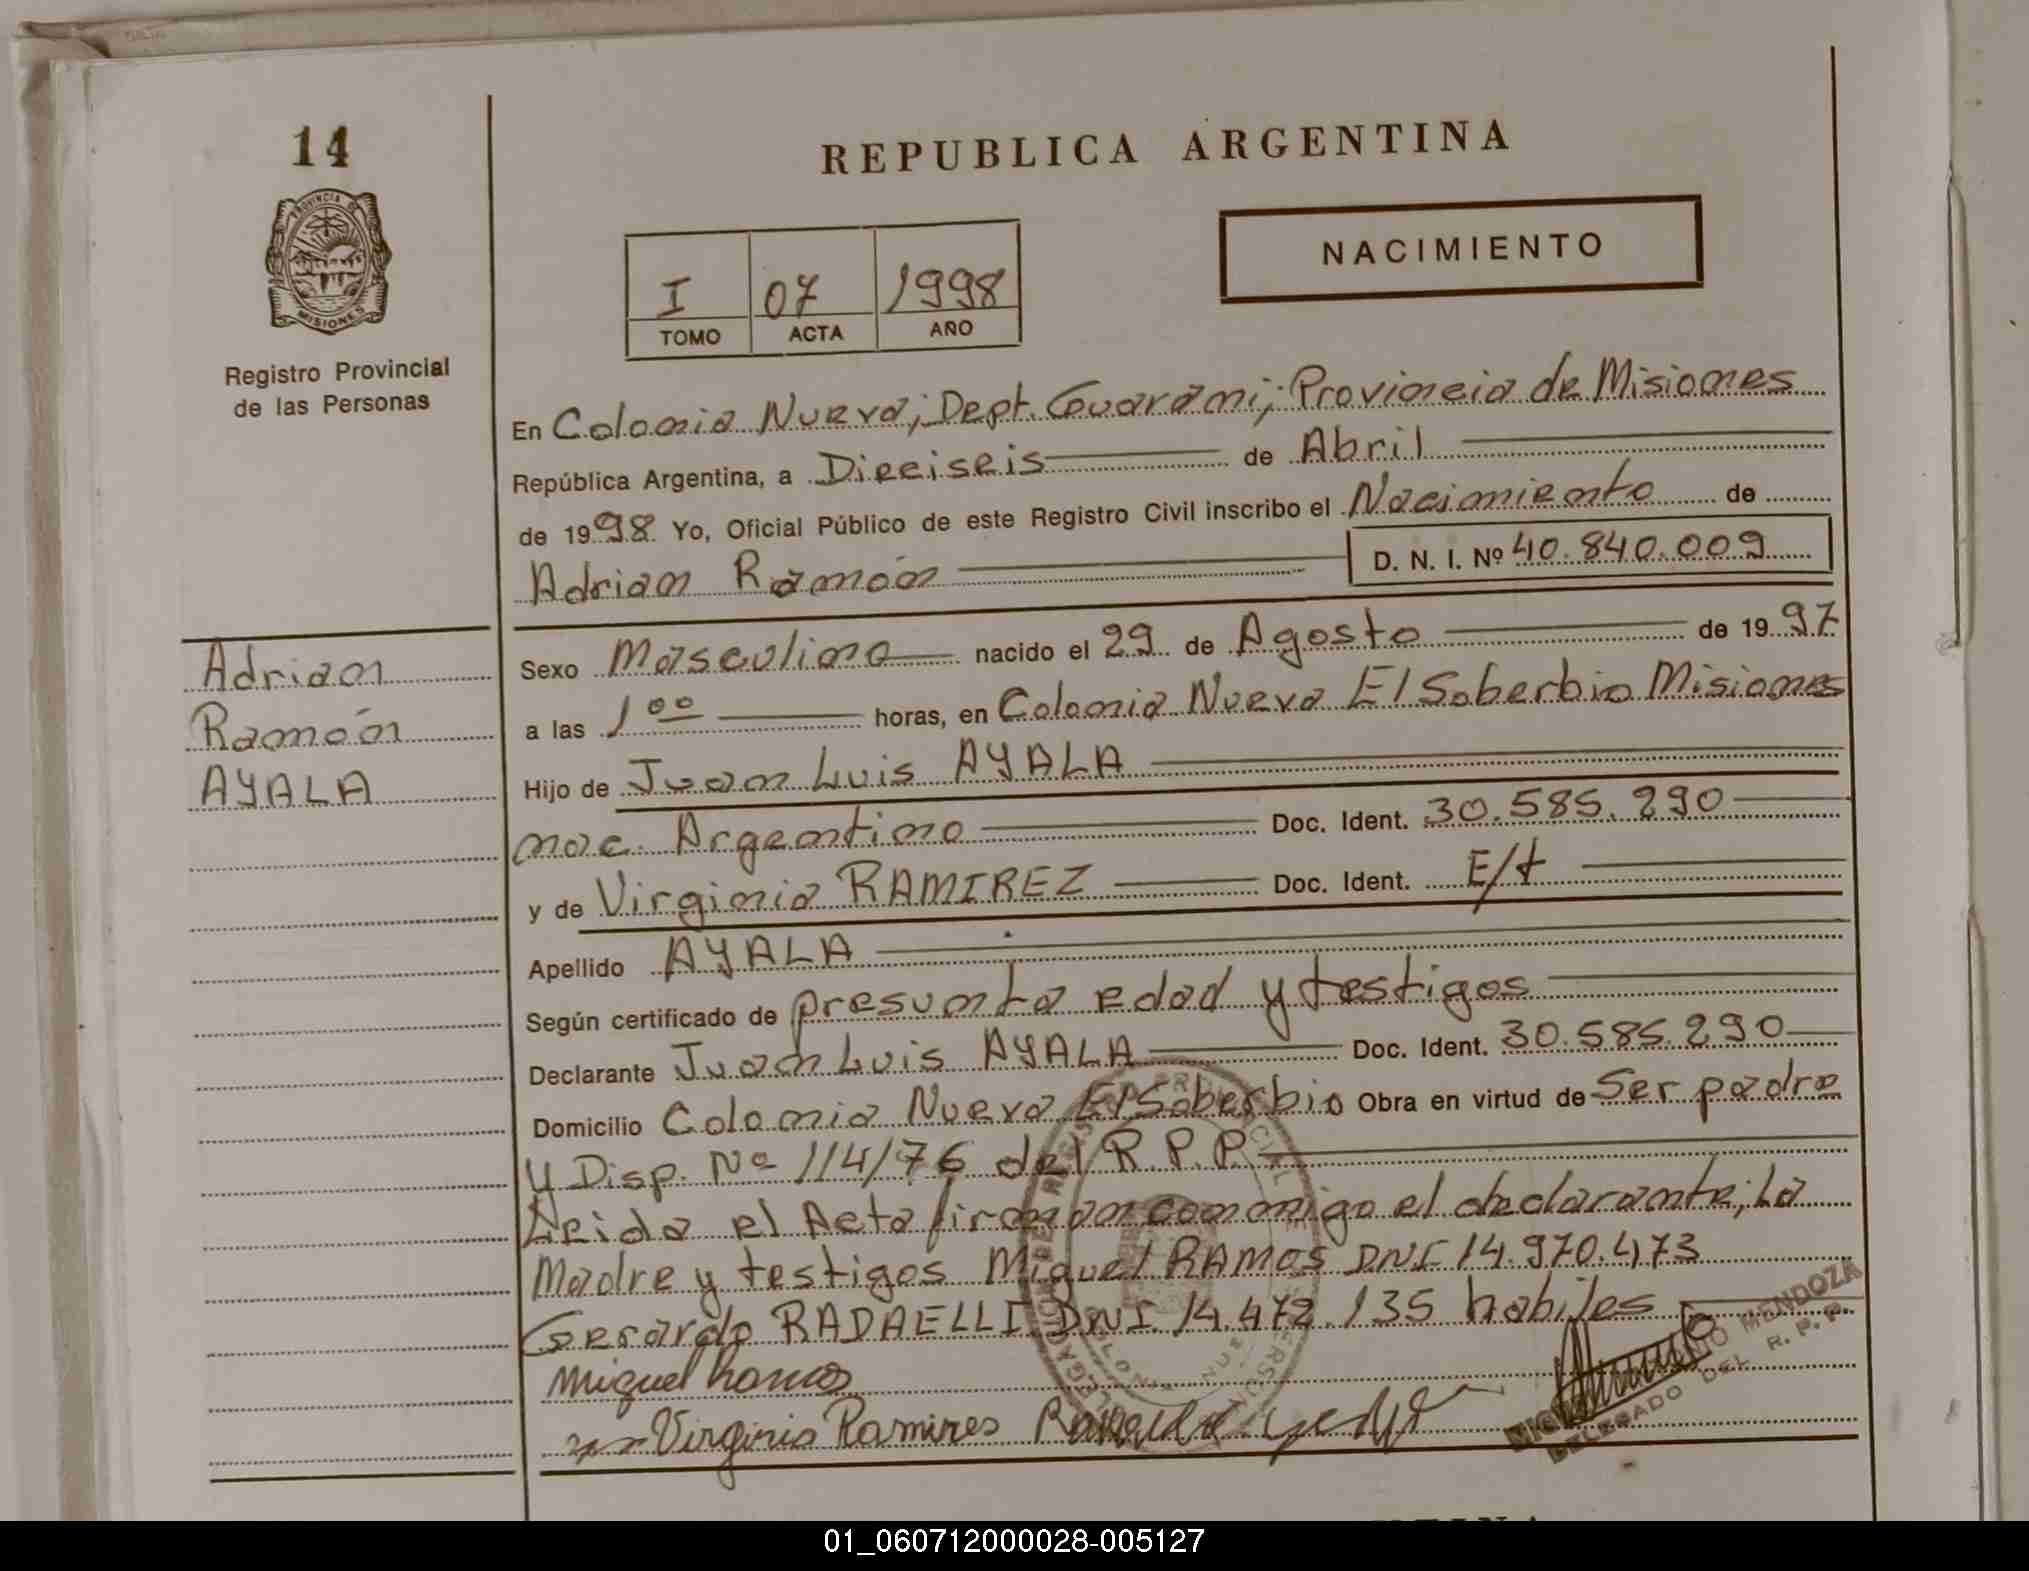 14
REPUBLICA ARGENTINA
PROVINCIA DE
MISIONES
NACIMIENTO
I 07 1998
TOMO ACTA AÑO
Registro Provincial
de las Personas
En Colonia Nueva; Dept. Guarani; Provincia de Misiones
República Argentina, a Dieciseis de Abril
de 1998 Yo, Oficial Público de este Registro Civil inscribo el Nacimiento de
Adrian Ramón D. N. I. Nº 40.840.009
Adrian
Ramón
AYALA
Sexo Masculino nacido el 29 de Agosto de 1997
a las 1 00 horas, en Colonia Nueva El Soberbio Misiones
Hijo de Juan Luis AYALA
nac. Argentino Doc. Ident. 30.585.290
y de Virginia RAMIREZ Doc. Ident. E/t
Apellido AYALA
Según certificado de presunta edad y testigos
Declarante Juan Luis AYALA Doc. Ident. 30.585.290
Domicilio Colonia Nueva El Soberbio Obra en virtud de Ser padre
y Disp. Nº 114/76 del R.P.P.
Leida el Acta firman conmigo el declarante; La
Madre y testigos Miguel RAMOS DNI 14.970.473
Gerardo RADAELLI DNI 14.472.135 habiles
Miguel Ramos
Virginia Ramires
MENDOZA
DELEGADO DEL R. P. P.
01_060712000028-005127